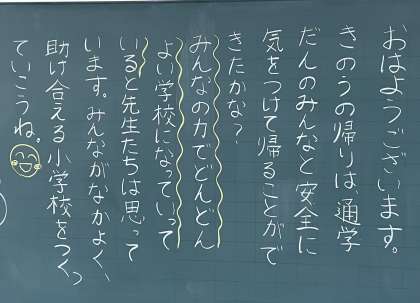 おはようございます。
きのうの帰りは、通学
だんのみんなと安全に
気をつけて帰ることがで
きたかな？
みんなの力でどんどん
よい学校になっていって
いると先生たちは思って
います。みんながなかよく、
助け合える小学校をつくっ
ていこうね。